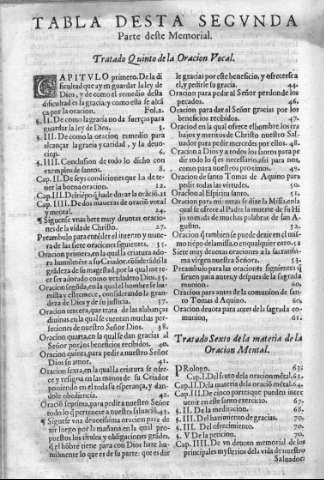 TABLA DESTA SEGVNDA
Parte deste Memorial.
Tratado Quinto de la Oracion Vocal.
CAPITVLO primero. De la di
ficultad que ay en guardar la ley de
Dios, y de como el remedio desta
dificultad es la gracia, y como esta se alcã
ça por la oracion. Fol.2.
§. II. De como la gracia no da fuerças para
guardar la ley de Dios. 5.
§. III. De como la oracion es medio para
alcançar la gracia y caridad, y la deuo-
cion.
§. IIII. Conclusion de todo lo dicho con
exemplos de santos. 8.
Cap. II. De seys condiciones que ha de te-
ner la buena oracion. 12.
Cap. III. De tiẽpo q̃ hade durar la oraciõ. 21
Cap. IIII. De dos maneras de oració vocal
y mental. 24.
¶ Siguense vnas siete muy deuotas oracio-
nes de la vida de Christo. 27.
Preambulo para entẽder el intento y mane-
ra de las siete oraciones siguientes. 35.
Oracion primera, en la qual la criatura ado
ra humilmente a su Criador, cõsiderãdo la
grãdeza de su magestad, por la qual me re-
ce ser adorado como verdadero Dios. 35.
Oracion segũda, en la qual el hombre se hu-
milla y estremece, considerando la gran-
deza de Dios y de su justicia. 37.
Oracion tercera, que trata de las alabanças
diuinas, en la qual se cuentan muchas per-
feciones de nuestro Señor Dios. 38.
Oracion quarta, en la qual se dan gracias al
Señor por los beneficios recebidos. 40.
Oracion quinta, para pedir a nuestro Señor
Dios su amor. 41.
Oracion sexta, en la qual la criatura se ofre-
ce y resigna en las manos de su Criador
poniendo en el toda la esperança, y dan-
dole obediencia. 42.
Oració septima, para pedir a nuestro Señor
todo lo q̃ pertenece a nuestra saluació. 43.
¶ Siguese vna deuotissima oracion para de-
zir luego por la mañana en la qual pro-
puestos los titulos y obligaciones grãdes,
q̃ el hõbre tiene para con Dios haze hu-
milmente lo que es de su parte: que es dar
le gracias por este beneficio, y ofrecese a
el, y pedirle su gracia. 44.
Oracion para pedir al Señor perdon de los
pecados. 46.
Oracion para dar al Señor gracias por los
beneficios recebidos. 47.
Oracion en la qual ofrece el hombre los tra
bajos y meritos de Christo nuestro Sal-
uador para pedir mercedes por ellos. 48.
Oracion a Dios y a todos los santos para pe
dir todo lo q̃ es necessario, assi para nos,
como para nuestros proximos. 49.
Oracion de santo Tomas de Aquino para
pedir todas las virtudes. 50.
Oracion al Espiritu santo. 51.
Oracion para mientras se dize la Missa, en la
qual se ofrece al Padre la muerte de su Hi
jo tomada de muchas palabras de san Au-
gustin. 52.
Oracion q̃ tambien se puede dezir en el mis
mo tiẽpo de la missa, o en qualquier otro. 52
Siete muy deuotas oraciones a la sacratis-
sima virgen nuestra Señora. 53.
Preambulo para las oraciones siguientes q̃
siruen para antes y despues de la sagrada
comunion. 60.
Oracion para antes de la comunion de san-
to Tomas d Aquino. 60.
Oracion deuota para antes de la sagrada co-
munion. 61.
Tratado Sexto de la materia de la
Oracion Mental.
PRologo. 63.
Cap. I. Del fruto de la oraciõ mẽtal. 63.
Cap. II. De la materia de la oraciõ mẽtal. 64.
Cap. III. De cinco partes que pueden inter
uenir en este santo exercicio. 67.
§. II. De la meditacion. 68.
§. III. Del hazimiento de gracias. 70.
§. IIII. Del ofrecimiento. 70.
§. V. De la peticion. 70.
Cap. IIII. De vn deuoto memorial de los
principales mysterios de la vida de nuestro
Saluador.